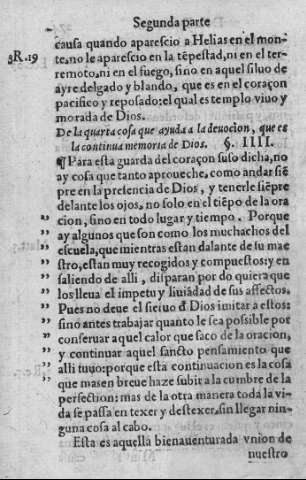 Segunda parte
causa quando aparescio a Helias en el mon-
3R. 19 te, no le aparescio en la tẽpestad, ni en el ter-
remoto, ni en el fuego, sino en aquel siluo de
ayre delgado y blando, que es en el coraçon
pacifico y reposado: el qual es templo viuo y
morada de Dios.
De la quarta cosa que ayuda a la deuocion, que es
la continua memoria de Dios. §. IIII.
¶ Para esta guarda del coraçon suso dicha, no
ay cosa que tanto aproueche, como andar siẽ
pre en la presencia de Dios, y tenerle siẽpre
delante los ojos, no solo en el tiẽpo de la ora
„ cion, sino en todo lugar y tiempo. Porque
„ ay algunos que son como los muchachos del
„ escuela, que mientras estan dalante de su mae
„ stro, estan muy recogidos y compuestos: y en
„ saliendo de alli, disparan por do quiera que
„ los lleua el impetu y liuiãdad de sus affectos.
„ Pues no deue el sieruo đ Dios imitar a estos:
„ sino antes trabajar quanto le sea possible por
„ conseruar aquel calor que saco de la oracion,
„ y continuar aquel sancto pensamiento que
„ alli tuuo: porque esta continuacion es la cosa
que mas en breue haze subir a la cumbre de la
perfection: mas de la otra manera toda la vi-
da se passa en texer y destexer, sin llegar nin-
guna cosa al cabo.
Esta es aquella bienauenturada vnion de
nuestro